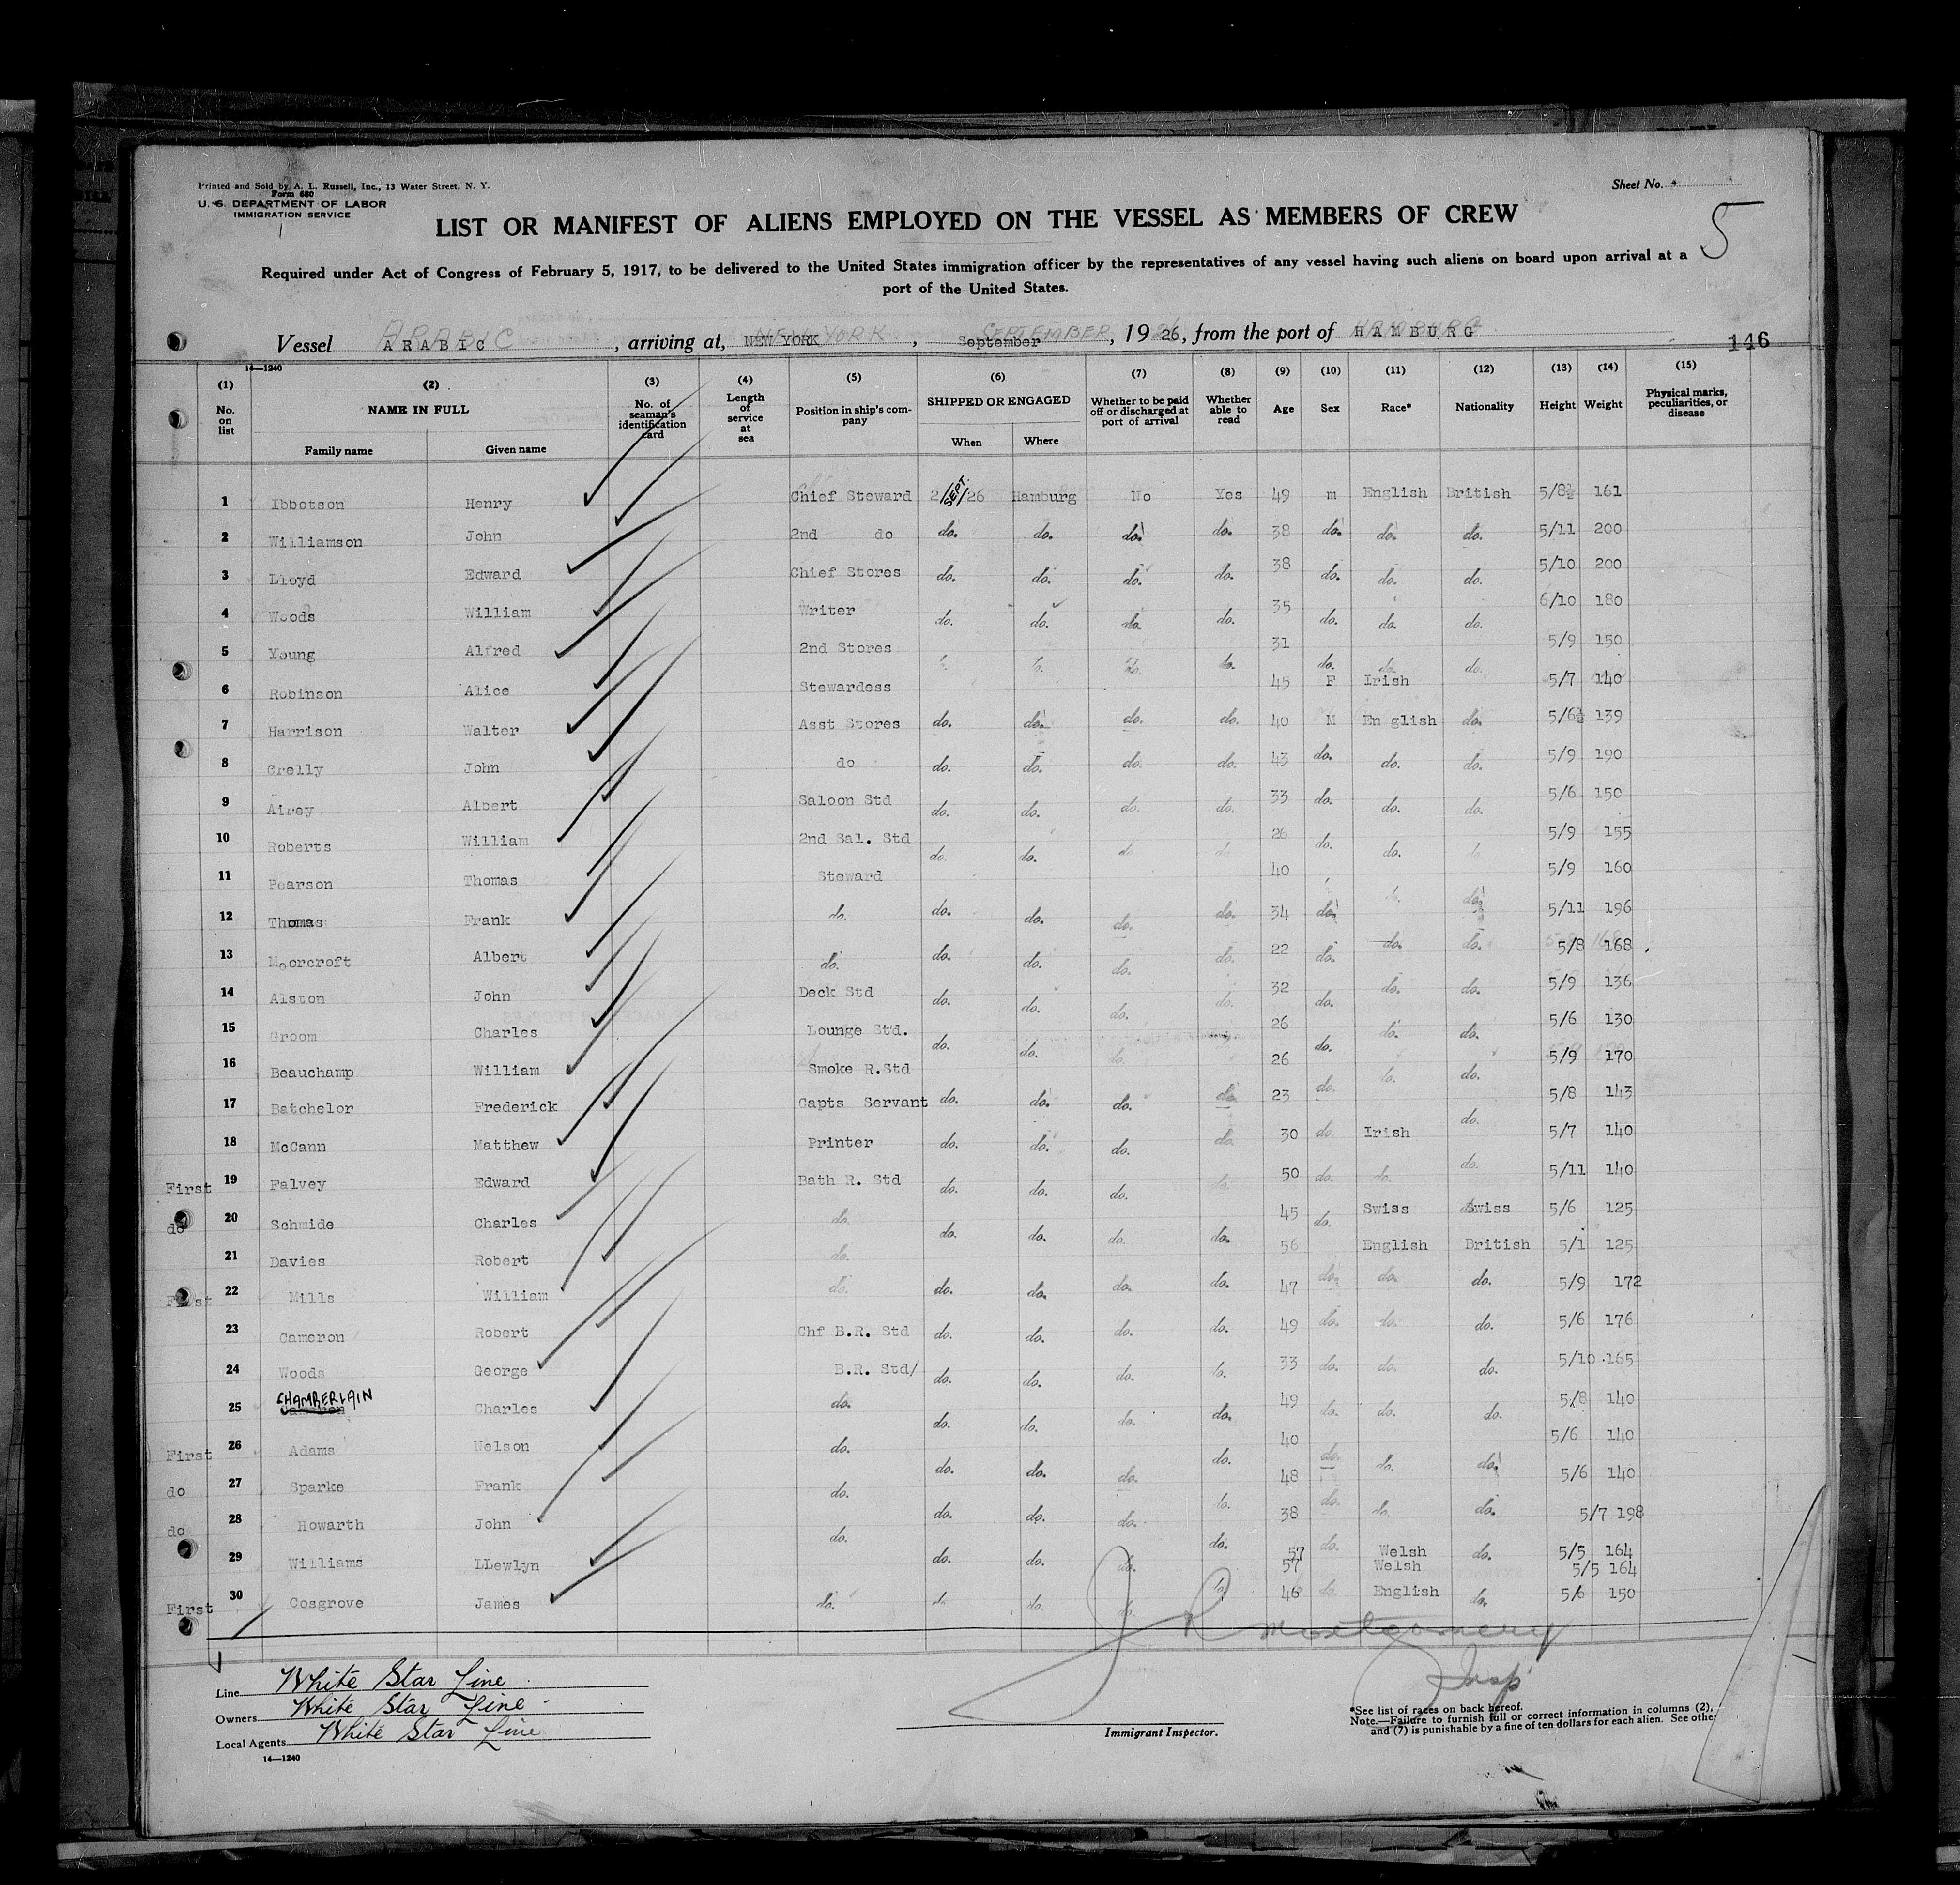 Printed and Sold by A. L. Russell, Inc., 13 Water Street, N. Y.
Form 680
U. S. DEPARTMENT OF LABOR
IMMIGRATION SERVICE
Sheet No.
5
LIST OR MANIFEST OF ALIENS EMPLOYED ON THE VESSEL AS MEMBERS OF CREW
Required under Act of Congress of February 5, 1917, to be delivered to the United States immigration officer by the representatives of any vessel having such aliens on board upon arrival at a
port of the United States.
Vessel ARABIC, arriving at, NEW YORK, September, 1926, from the port of HAMBURG
146
14—1240
(1) No. on list (2) NAME IN FULL Family name Given name (3) No. of seaman's identification card (4) Length of service at sea (5) Position in ship's company (6) SHIPPED OR ENGAGED When Where (7) Whether to be paid off or discharged at port of arrival (8) Whether able to read (9) Age (10) Sex (11) Race* (12) Nationality (13) Height (14) Weight (15) Physical marks, peculiarities, or disease
1 Ibbotson Henry Chief Steward 2/SEPT/26 Hamburg No Yes 49 m English British 5/8½ 161
2 Williamson John 2nd do do. do. do. do. 38 do. do. do. 5/11 200
3 Lloyd Edward Chief Stores do. do. do. do. 38 do. do. do. 5/10 200
4 Woods William Writer do. do. do. do. 35 do. do. do. 6/10 180
5 Young Alfred 2nd Stores do. do. do. do. 31 do. do. do. 5/9 150
6 Robinson Alice Stewardess 45 F Irish 5/7 140
7 Harrison Walter Asst Stores do. do. do. do. 40 M En glish do. 5/6½ 139
8 Grelly John do do. do. do. do. 43 do. do. do. 5/9 190
9 Airey Albert Saloon Std do. do. do. do. 33 do. do. do. 5/6 150
10 Roberts William 2nd Sal. Std do. do. do do 26 do. do. do. 5/9 155
11 Pearson Thomas Steward 40 5/9 160
12 Thomas Frank do. do. do. do. do. 34 do. do. do. 5/11 196
13 Moorcroft Albert do. do. do. do. do. 22 do. do. do. 5/8 168
14 Alston John Deck Std do. do. do. do. 32 do. do. do. 5/9 136
15 Groom Charles Lounge Std. do. do. do. 26 do. do. do. 5/6 130
16 Beauchamp William Smoke R.Std 26 do. do. do. 5/9 170
17 Batchelor Frederick Capts Servant do. do. do. do. 23 do. 5/8 143
18 McCann Matthew Printer do. do. do. do. 30 do. Irish do. 5/7 140
First 19 Falvey Edward Bath R. Std do. do. do. do. 50 do. do. do. 5/11 140
do 20 Schmide Charles do. do. do. do. do. 45 do. Swiss Swiss 5/6 125
21 Davies Robert do. 56 English British 5/1 125
First 22 Mills William do. do. do. do. do. 47 do. do. do. 5/9 172
23 Cameron Robert Chf B.R. Std do. do. do. do. 49 do. do. do. 5/6 176
24 Woods George B.R. Std/ do. do. do. do. 33 do. do. do. 5/10 165
25 CHAMBERLAIN Charles do. do. do. do. do. 49 do. do. do. 5/8 140
First 26 Adams Nelson do. do. do. do. do. 40 do. do. do. 5/6 140
do 27 Sparke Frank do. do. do. do. do. 48 do. do. do. 5/6 140
do 28 Howarth John do. do. do. do. do. 38 do. 5/7 198
29 Williams LLewlyn 57 Welsh do. 5/5 164
57 Welsh 5/5 164
First 30 Cosgrove James do. do. do. do. do. 46 do. English do. 5/6 150
J R Montgomery
Insp
Line White Star Line
Owners White Star Line
Local Agents White Star Line
14—1240
Immigrant Inspector.
*See list of races on back hereof.
Note.—Failure to furnish full or correct information in columns (2),
and (7) is punishable by a fine of ten dollars for each alien. See other